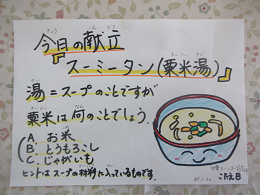 今月の献立
『スーミータン(粟米湯)』
湯=スープのことですが
粟米は何のことでしょう。
A. お米
B. とうもろこし
C. じゃがいも
ヒントはスープの材料に入っているものです。
こたえB